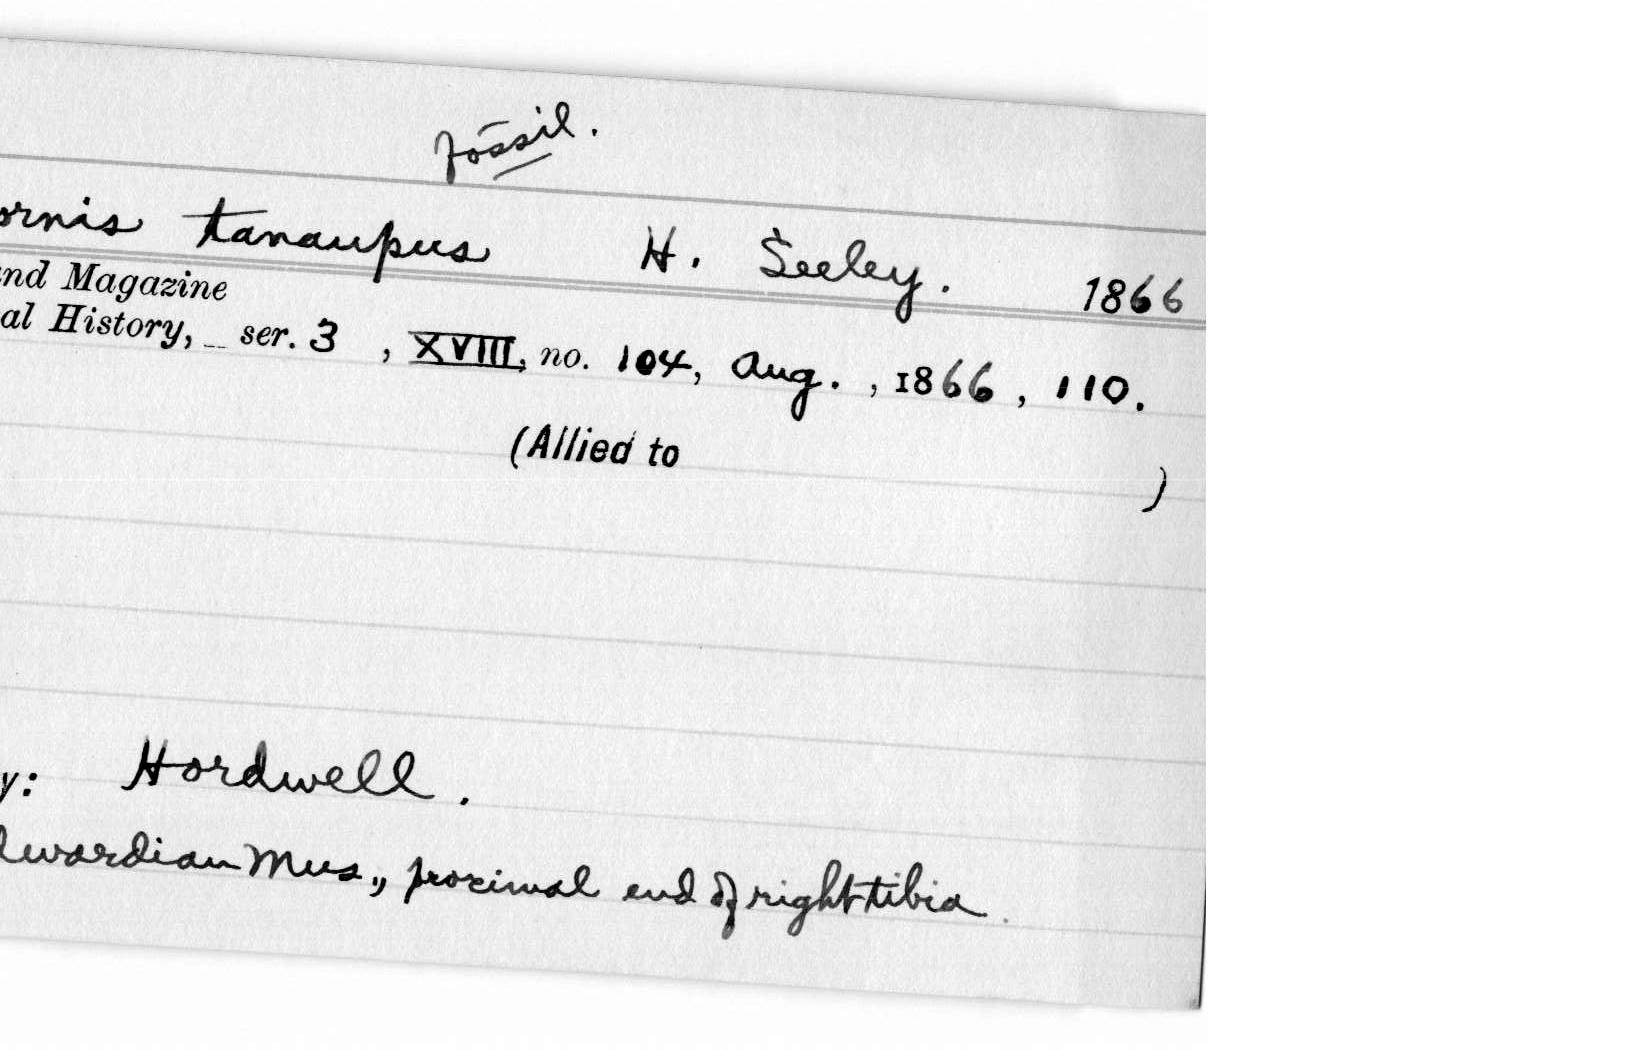 fossil.
ornis tanaupus H. Seeley. 1866
nd Magazine
al History, ser. 3, XVIII, no. 104, Aug., 1866, 110.
(Allied to )
y: Hordwell.
dwardian Mus., proximal end of right tibia.